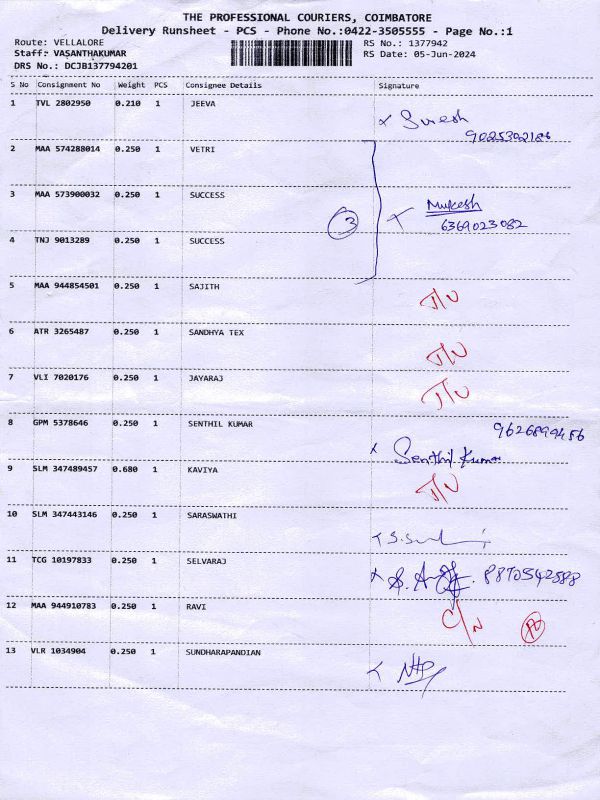 THE PROFESSIONAL COURIERS, COIMBATORE
Delivery Runsheet - PCS - Phone No.:0422-3505555 - Page No.:1
Route: VELLALORE RS No.: 1377942
Staff: VASANTHAKUMAR RS Date: 05-Jun-2024
DRS No.: DCJB137794201
S No Consignment No Weight PCS Consignee Details Signature
1 TVL 2802950 0.210 1 JEEVA
x Suresh
9025302186
2 MAA 574288014 0.250 1 VETRI
3 MAA 573900032 0.250 1 SUCCESS
3 Mukesh
6369023082
4 TNJ 9013289 0.250 1 SUCCESS
5 MAA 944854501 0.250 1 SAJITH
I/U
6 ATR 3265487 0.250 1 SANDHYA TEX
I/U
7 VLI 7020176 0.250 1 JAYARAJ
I/U
8 GPM 5378646 0.250 1 SENTHIL KUMAR
9626899456
x Senthil Kumar
9 SLM 347489457 0.680 1 KAVIYA
I/U
10 SLM 347443146 0.250 1 SARASWATHI
11 TCG 10197833 0.250 1 SELVARAJ
8870542588
12 MAA 944910783 0.250 1 RAVI
C/N
13 VLR 1034904 0.250 1 SUNDHARAPANDIAN